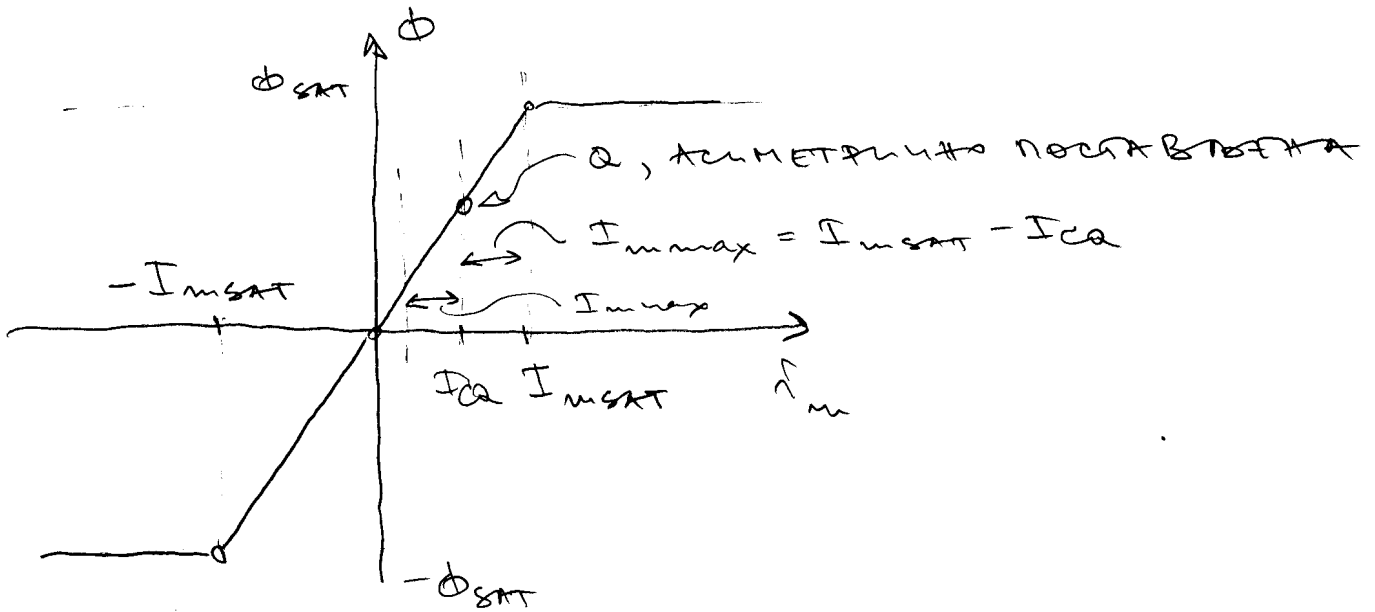 Φ
Φ SAT
Q, АСИМЕТРИЧНО ПОСТАВЉЕНА
I m max = I m SAT - I CQ
-I m SAT
I m max
I CQ I m SAT
i m
-Φ SAT